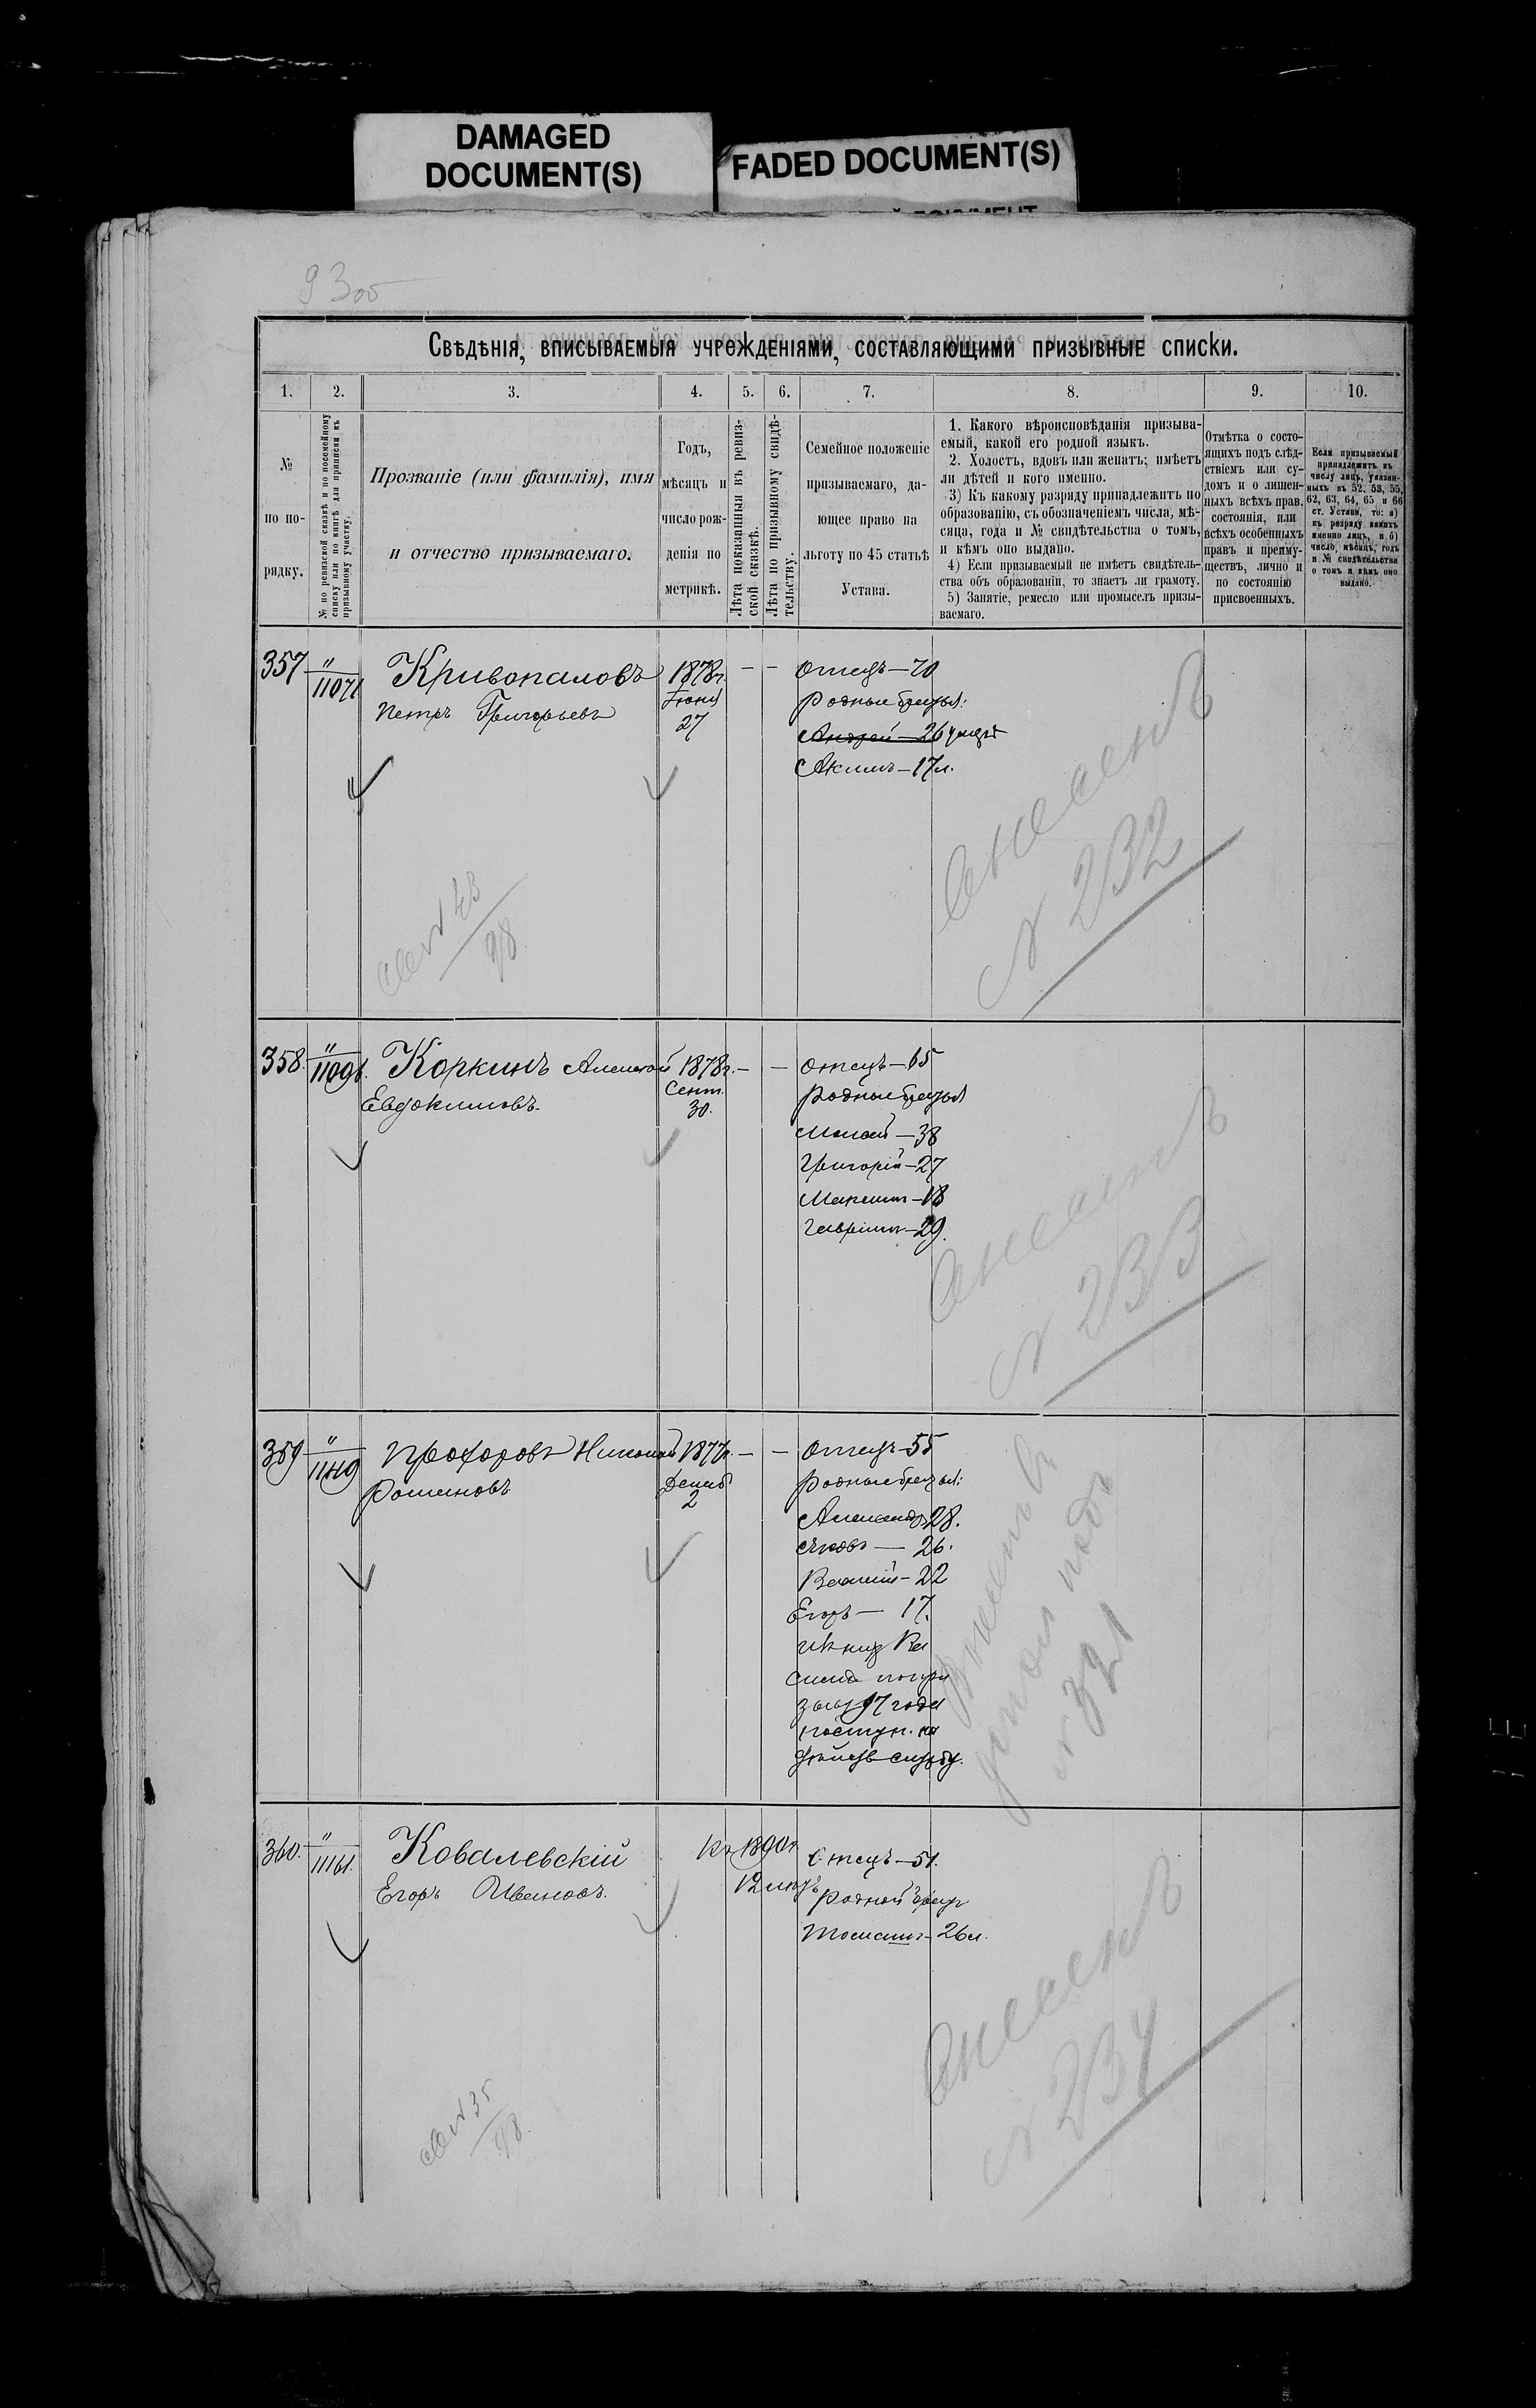 DAMAGED
DOCUMENT(S)
FADED DOCUMENT(S)
Свѣдѣнія, вписываемыя учрежденіями, составляющими призывные списки.
1. 2. 3. 4. 5. 6. 7. 8. 9. 10.
№
по по-
рядку.
№ по ревизской сказкѣ и по посемейному
списку или по книгѣ для приписки къ
призывному участку.
Прозваніе (или фамилія), имя
и отчество призываемаго.
Годъ,
мѣсяцъ и
число рож-
денія по
метрикѣ.
Лѣта показанныя въ ревиз-
ской сказкѣ.
Лѣта по призывному свидѣ-
тельству.
Семейное положеніе
призываемаго, да-
ющее право на
льготу по 45 статьѣ
Устава.
1. Какого вѣроисповѣданія призыва-
емый, какой его родной языкъ.
2. Холостъ, вдовъ или женатъ; имѣетъ
ли дѣтей и кого именно.
3) Къ какому разряду принадлежитъ по
образованію, съ обозначеніемъ числа, мѣ-
сяца, года и № свидѣтельства о томъ,
и кѣмъ оно выдано.
4) Если призываемый не имѣетъ свидѣтель-
ства объ образованіи, то знаетъ ли грамоту.
5) Занятіе, ремесло или промыселъ призы-
ваемаго.
Отмѣтка о состо-
ящихъ подъ слѣд-
ствіемъ или су-
домъ и о лишен-
ныхъ всѣхъ прав.
состоянія, или
всѣхъ особенныхъ
правъ и преиму-
ществъ, лично и
по состоянію
присвоенныхъ.
Если призываемый
принадлежитъ къ
числу лицъ, указан-
ныхъ въ 52, 53, 55,
62, 63, 64, 65 и 66
ст. Устава, то: а)
къ разряду какихъ
именно лицъ, и б)
число, мѣсяцъ, годъ
и № свидѣтельства
о томъ и кѣмъ оно
выдано.
357
"
11071
Кривопаловъ
Петръ Григорьевъ
1878г.
Іюня
27
— —
Отецъ—70
Родные братья:
Андрей—26
Акимъ—17л.
Внесенъ
№ 232
98
358.
"
Коркинъ Алексѣй
Евдокимовъ.
1878г.
Сент.
30.
— —
Отецъ—65
Родные братья
Григорій—27
Максимъ—18
Гавріилъ—29.
Внесенъ
№ 233
359
"
Прохоровъ Николай
Романовъ
1877г.
Декаб
2
— —
Отецъ—55
Родные братья:
Александръ 28.
Яковъ — 26.
Василій—22
Егоръ — 17.
зыву 97 года
поступ. на
№ 321
360.
"
11161.
Ковалевскій
Егоръ Ивановъ.
1890г.
12
Отецъ—51.
Родной братъ
26л.
Внесенъ
№ 234
98.